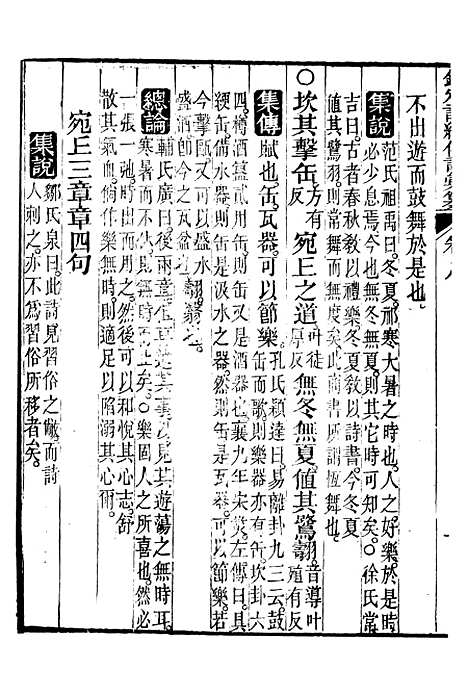 不出遊而鼓舞於是也
集說
范氏祖禹曰。冬夏。祁寒大暑之時也。人之好樂。於是時
必少息焉。今也無冬無夏。則其它時可知矣。○徐氏常
吉曰。古者春秋敎以禮樂。冬夏敎以詩書。今冬夏
値其鷺羽。則其舞無度矣。此商書所謂恆舞也。
○坎其擊缶。方有反宛丘之道。叶徒厚反無冬無夏。値其鷺翿。音導叶殖有反
集傳
賦也。缶瓦器。可以節樂。孔氏穎達曰。易離卦九三云。鼓
缶而歌。則樂器亦有缶。坎卦六
四。樽酒簋貳用缶。則缶又是酒器也。襄九年宋災。左傳曰。具
綆缶。備水器。則缶是汲水之器。然則缶是瓦器。可以節樂。若
今擊甌。又可以盛水
盛酒。卽今之瓦盆也
翿。翳也。
總論
輔氏廣曰。後兩章。
其遊蕩之無時耳。
寒暑而不止矣。○樂固人之所喜也。然必
一張一弛。時出而用之。然後可以和悅其心志。舒
散其氣血。倘往來無時。則適足以陷溺其心爾。
宛丘三章章四句
集說
鄒氏泉曰。此詩見習俗之敝。而詩
人刺之。亦不爲習俗所移者矣。